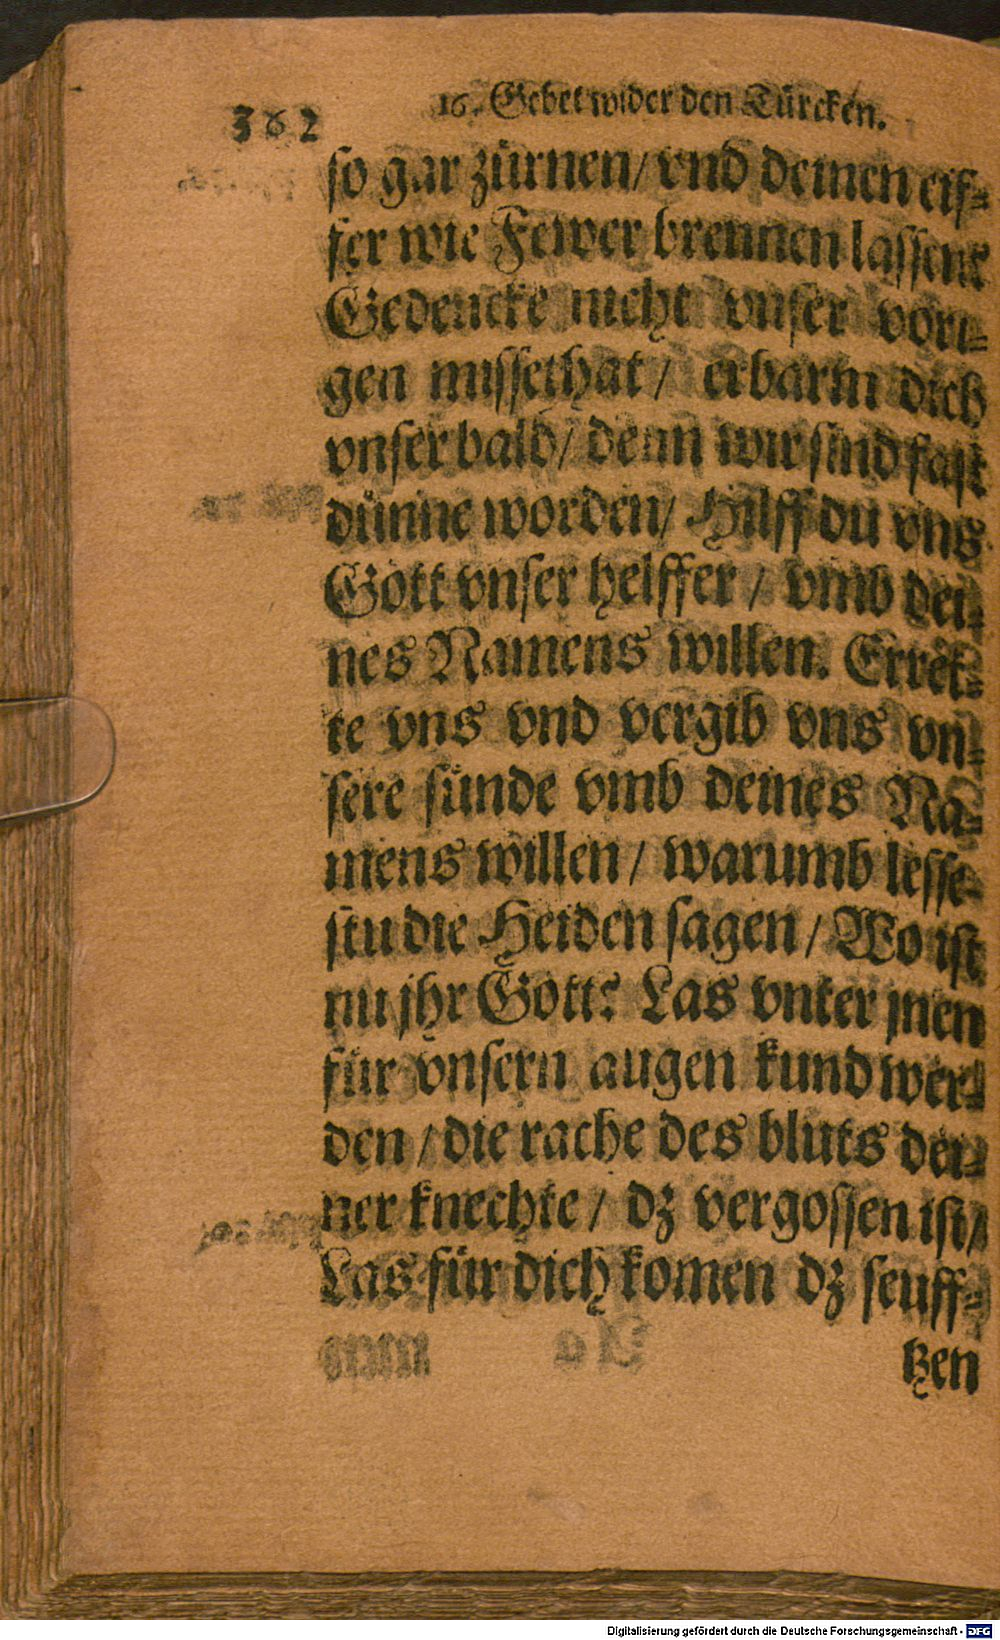 362
16. Gebet wider den Türcken.
so gar zürnen/ vnd deinen eif⸗
fer wie Fewer brennen lassen?
Gedencke nicht vnser vori⸗
gen missethat/ erbarm dich
vnser bald/ denn wir sind fast
dünne worden/ Hilff du vns
Gott vnser helffer/ vmb dei⸗
nes Namens willen. Erret⸗
te vns vnd vergib vns vn⸗
sere sünde vmb deines Na⸗
mens willen/ warumb lesse⸗
stu die Heiden sagen/ Wo ist
nu jhr Gott? Las vnter jnen
für vnsern augen kund wer⸗
den/ die rache des bluts dei⸗
ner knechte/ dz vergossen ist/
Las für dich komen dz seuff⸗
tzen
Digitalisierung gefördert durch die Deutsche Forschungsgemeinschaft - DFG